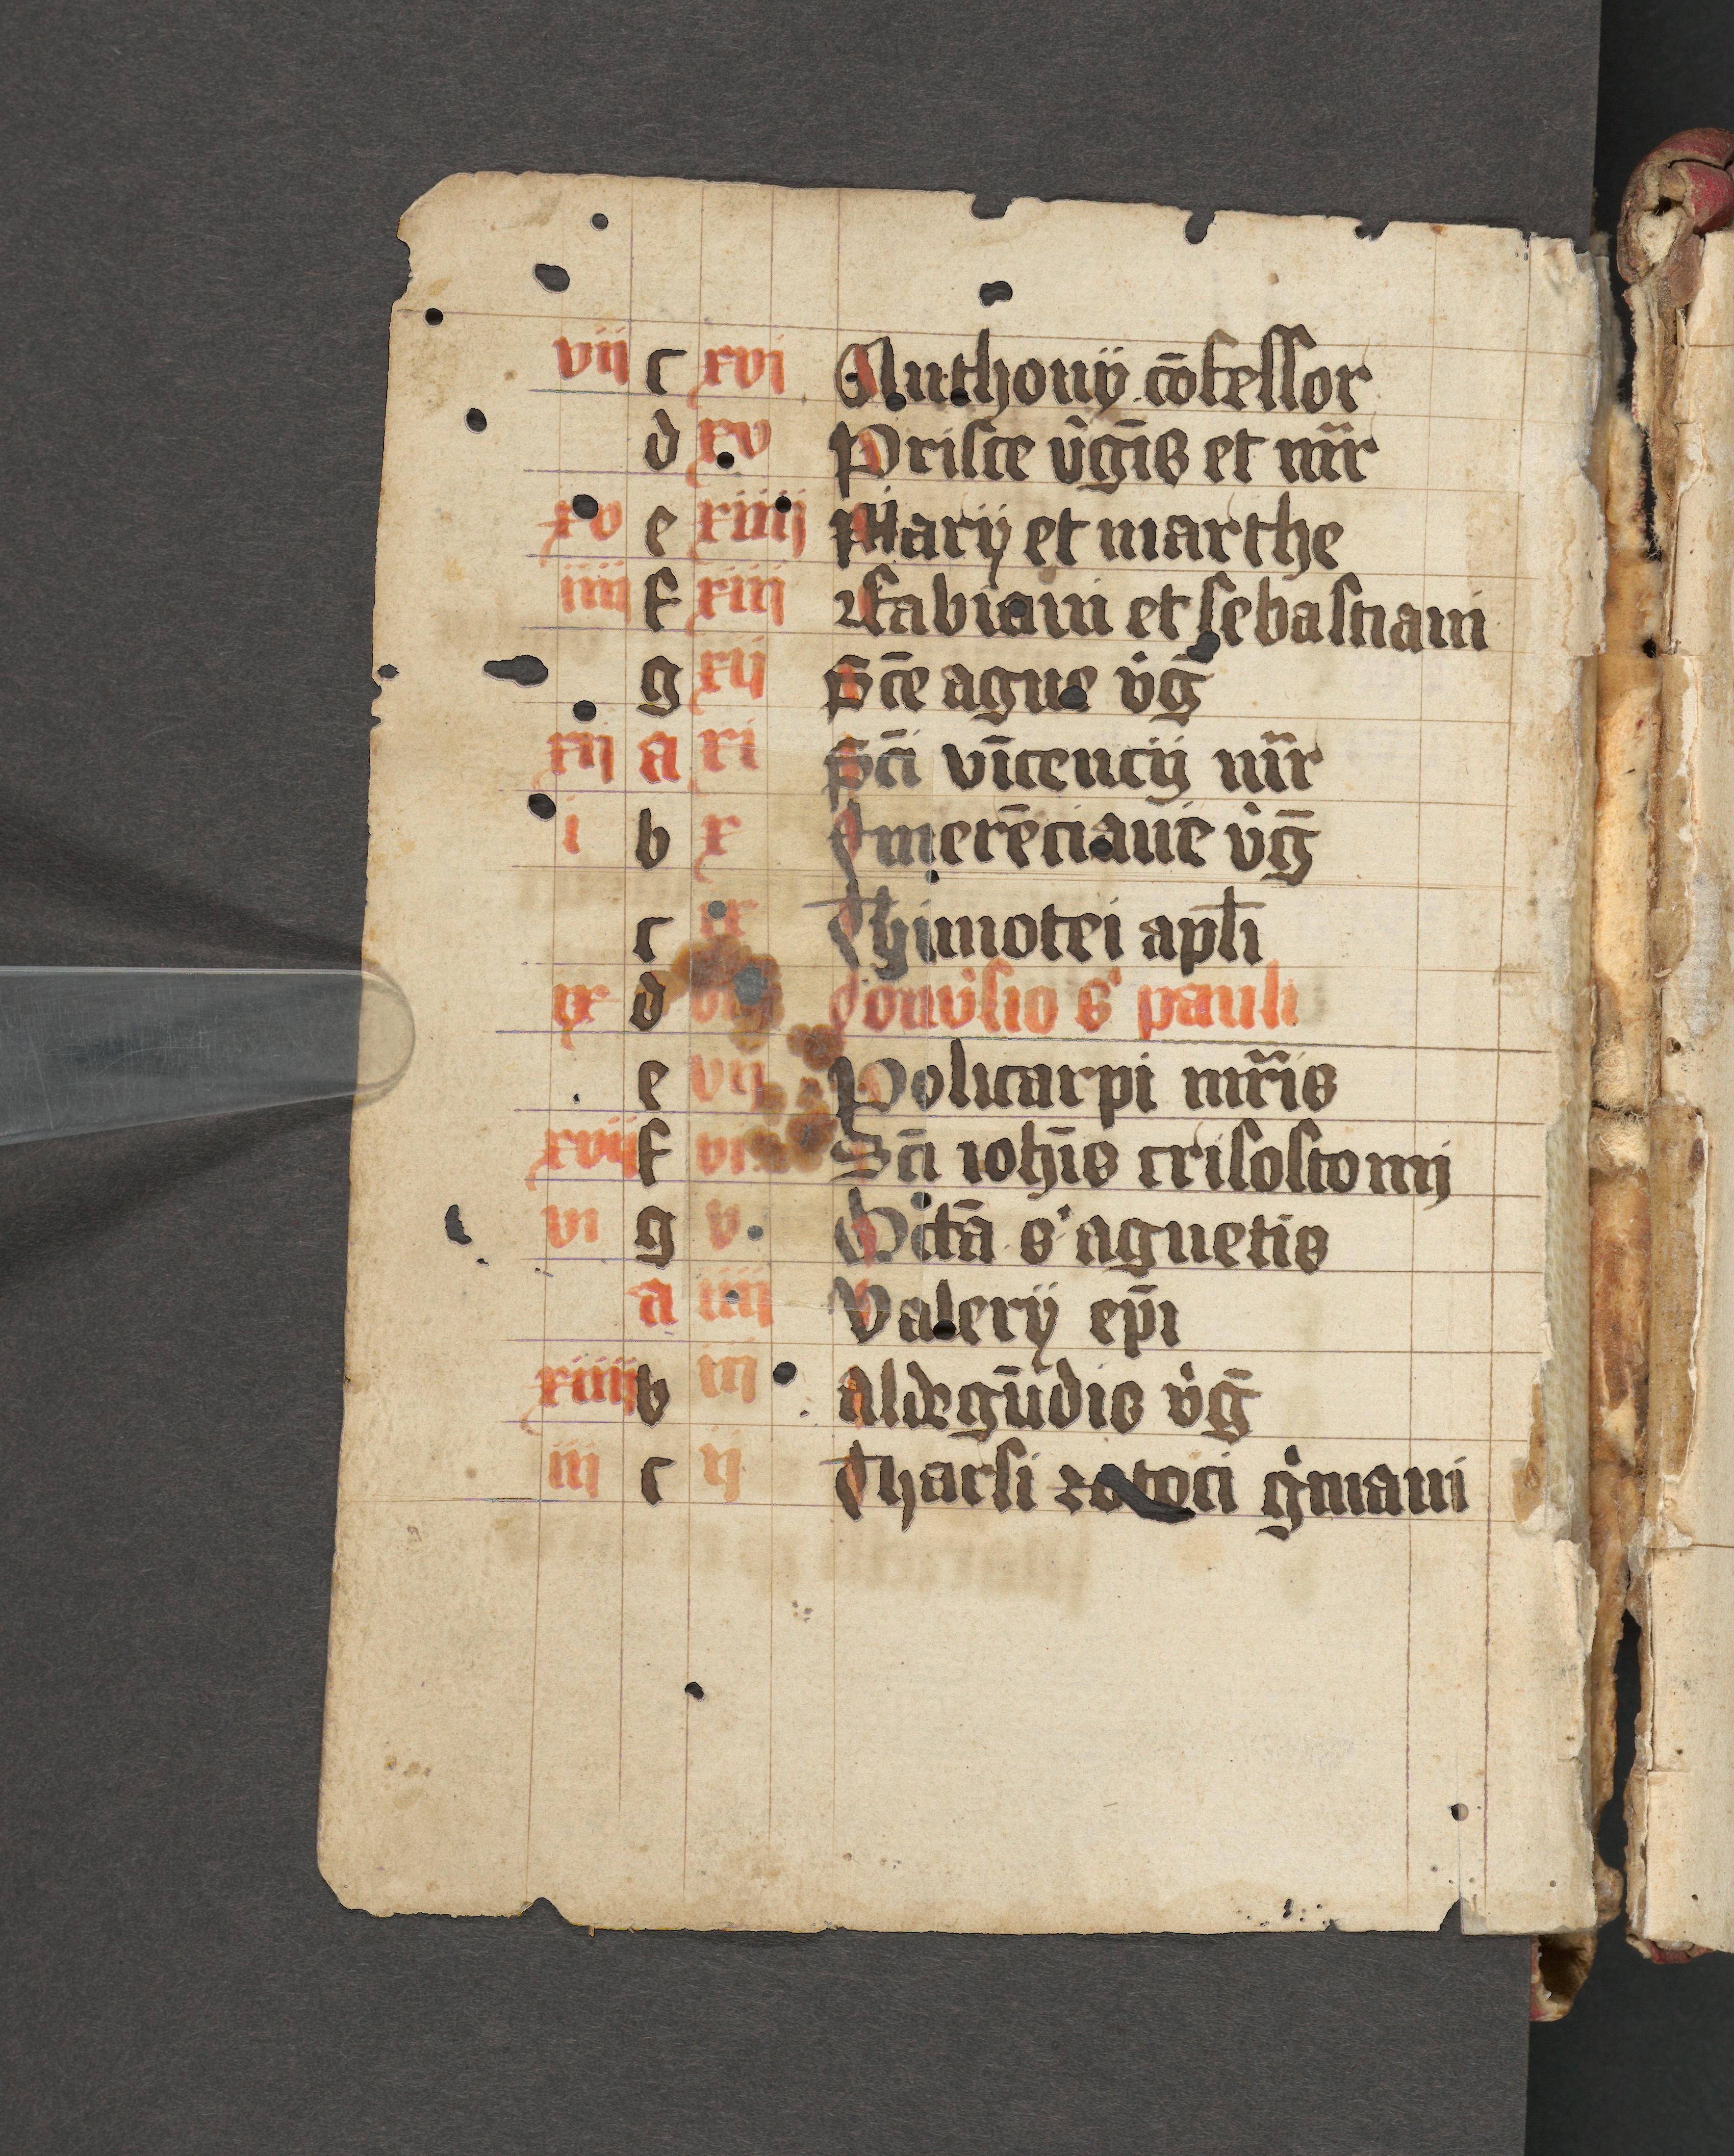 vij c xvi Anthonij cōfessor
d xv Prisce v̾gīs et mr̄
xv e xiiij Marij et marthe
iiij f xiij Fabiani et sebastiani
g xij Sc̄e agne v̾ḡ
xij a xi Sc̄i vīcencij mr̄
i b x Emerēciane v̾ḡ
c ix Thimotei apl̄i
ix d domṽsio s' pauli
e vij Policarpi mr̄is
xvij f vi Sc̄i ioh̄is crisostomi
vi g v Octā s' agnetis
a iiij Valerij ep̄i
xiiij b iij Aldegūdis v̾ḡ
iij c ij Tharsi gͥmani